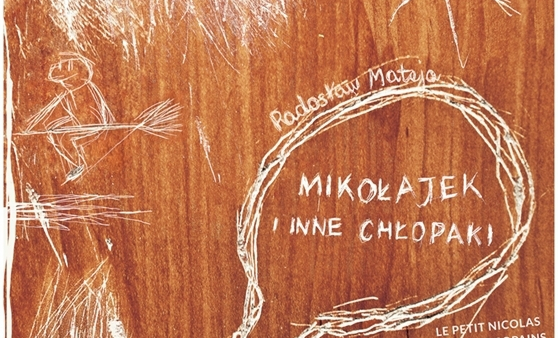 Radosław Mateja
MIKOŁAJEK
I INNE CHŁOPAKI
LE PETIT NICOLAS